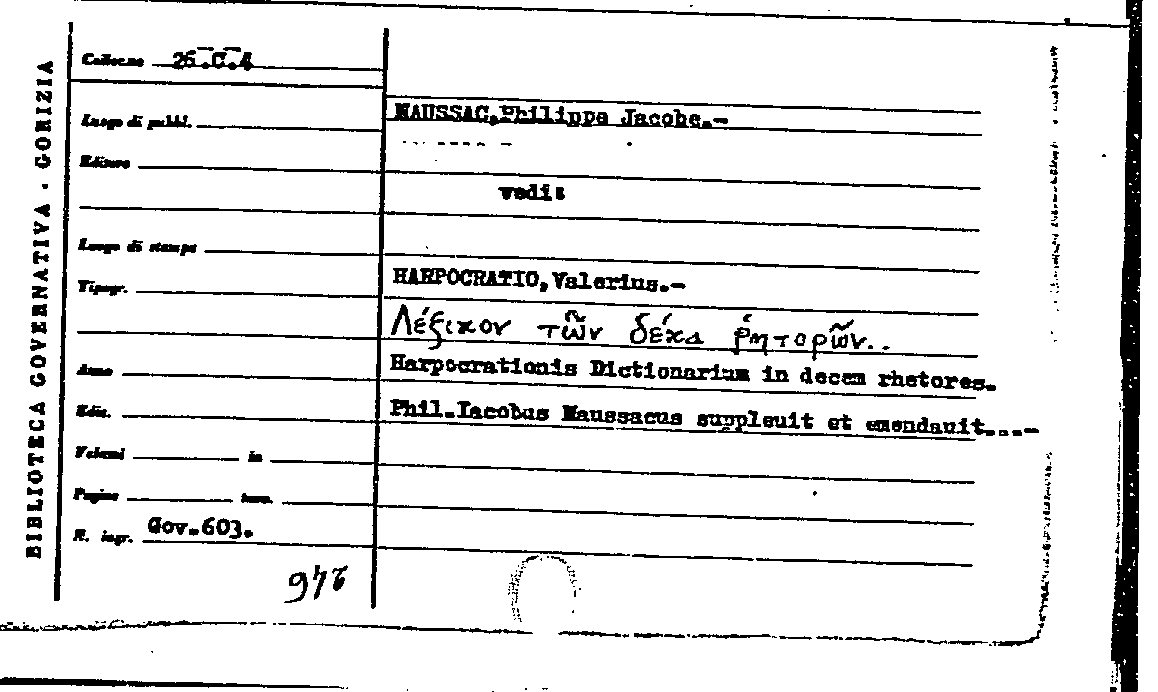 BIBLIOTECA GOVERNATIVA - GORIZIA
Colloc.ne 26.C.4
Luogo di pubbl.
Editore
Luogo di stampa
Tipogr.
Anno
Ediz.
Volumi in
Pagine tavv.
N. ingr. Gov.603.
MAUSSAC,Philippe Jacobe.-
vedi:
HARPOCRATIO,Valerius.-
Λέξικον τῶν δέκα ῥητορῶν..
Harpocrationis Dictionarium in decem rhetores.
Phil.Iacobus Maussacus suppleuit et emendauit...-